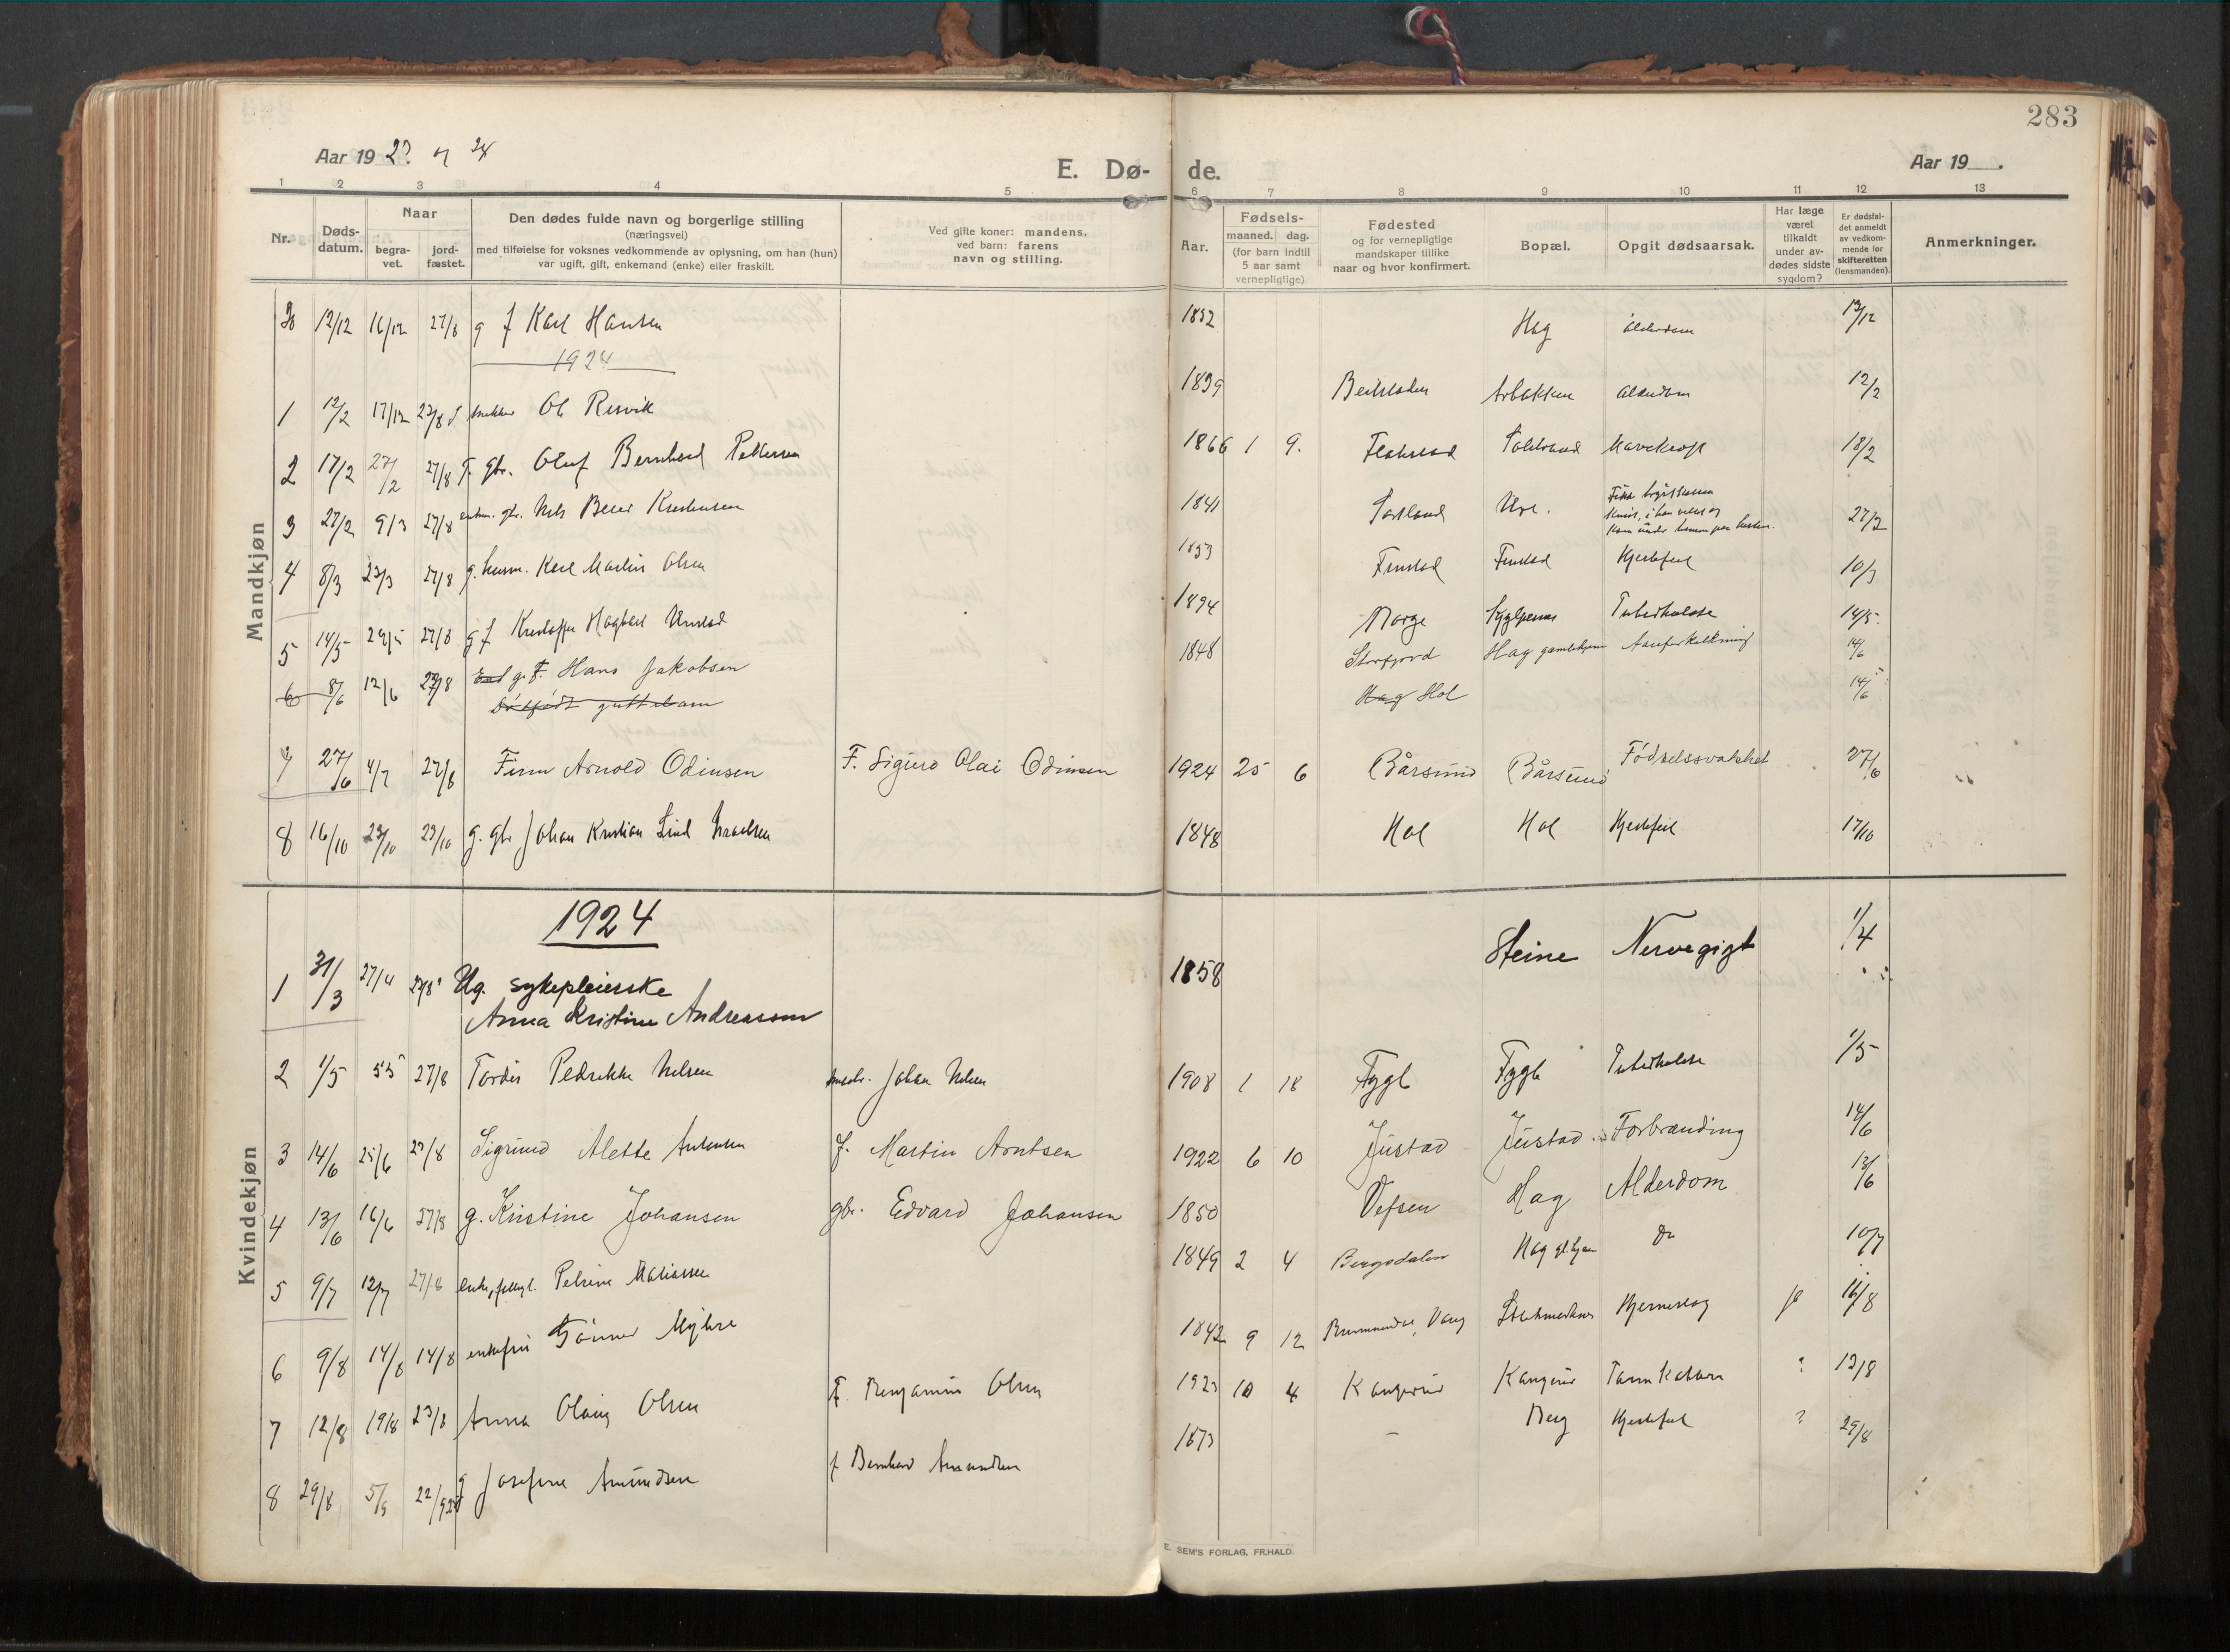 283
Aar 1923 og 24
E. Dø-
de.
Aar 19 .
1 2 3 4 5 6 7 8 9 10 11 12 13
Nr.
Døds-
datum.
Naar
begra-
vet.
jord-
fæstet.
Den dødes fulde navn og borgerlige stilling
(næringsvei)
med tilføielse for voksnes vedkommende av oplysning, om han (hun)
var ugift, gift, enkemand (enke) eller fraskilt.
Ved gifte koner: mandens,
ved barn: farens
navn og stilling.
Aar.
Fødsels-
maaned. dag.
(for barn indtil
5 aar samt
vernepligtige)
Fødested
og for vernepligtige
mandskaper tillike
naar og hvor konfirmert.
Bopæl.
Opgit dødsaarsak.
Har læge
været
tilkaldt
under av-
dødes sidste
sygdom?
Er dødsfal-
det anmeldt
av vedkom-
mende for
skifteretten
(lensmanden).
Anmerkninger.
Mandkjøn
12/12 16/12 27/8 g f Karl Hansen 1832 Hag Alderdom 13/12
1924
1 12/2 17/12 23/8 Ol Resvik 1839 Arbakken Alderdom 12/2
2 17/2 27/2 27/8 F. gbr. Oluf Bernhard Pettersen 1866 1 9. Flakstad 18/2
3 27/2 9/3 27/8 enkm. gbr. Nels 1841 Ure. 27/2
4 8/3 23/3 27/8 g. husm. Karl Martin Olsen 1853 Finstad Finstad Hjertefeil 10/3
5 14/5 24/5 27/8 g f Hagbart Unstad 1894 Tuberkulose 14/5
6 8/6 12/6 27/8 g. F. Hans Jakobsen 1848 Storfjord Hag gamlehjem Aareforkalkning 14/6
Dødfødt guttebarn Hag Hol 14/6
7 27/6 4/7 27/8 Finn Arnold Odinsen F. Sigurd Olai Odinsen 1924 25 6 Bårsund Bårsund Fødselssvakhet 27/6
8 16/10 23/10 23/10 g. gbr Johan Kristian Lind Israelsen 1848 Hol Hol Hjertefeil 17/10
Kvindekjøn
1924
1 31/3 27/4 27/8 Ug. sykepleierske 1858 Steine Nervegigt 1/4
Anna Kristine Andreassen
2 1/5 5/5 27/8 Tordis Pedrikke Nelsen Johan Nelsen 1908 1 18 Fygle Fygle Tuberkulose 1/5
3 14/6 25/6 27/8 Sigrund Alette Arntsen f. Martin Arntsen 1922 6 10 Justad Justad Forbrænding 14/6
4 13/6 16/6 27/8 g. Kristine Johansen gbr. Edvard Johansen 1850 Vefsen Hag Alderdom 13/6
5 9/7 12/7 27/8 enke, Petrine 1849 2 4 Bergsdalen Hag gl.hjem Do 10/7
6 9/8 14/8 14/8 enkefru Myhre 1842 9 12 Vang Hjerneslag ja 16/8
7 12/8 19/8 23/8 Anna Olsen F. Benjamin Olsen 1923 10 4 Kangerud Kangerud ? 12/8
8 29/8 5/9 22/9 g Josefine Amundsen f Bernhard Amundsen 1873 - Berg Hjertefeil ? 29/8
E. SEM'S FORLAG, FR.HALD.